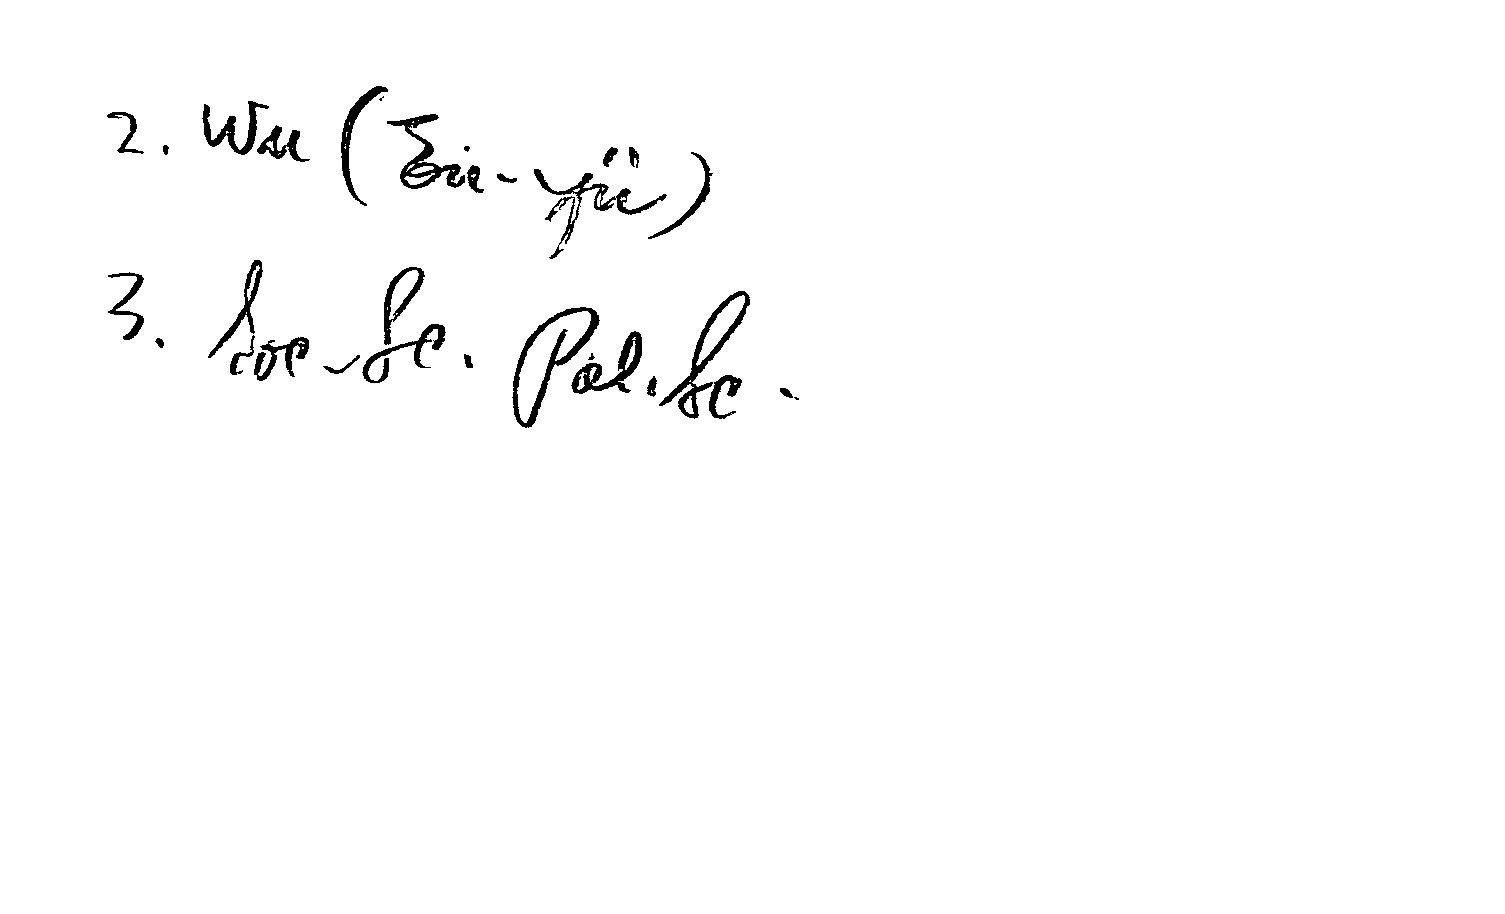 2. Wu (Ziu-yü)
3. Soc-Sc. Pol. Sc.